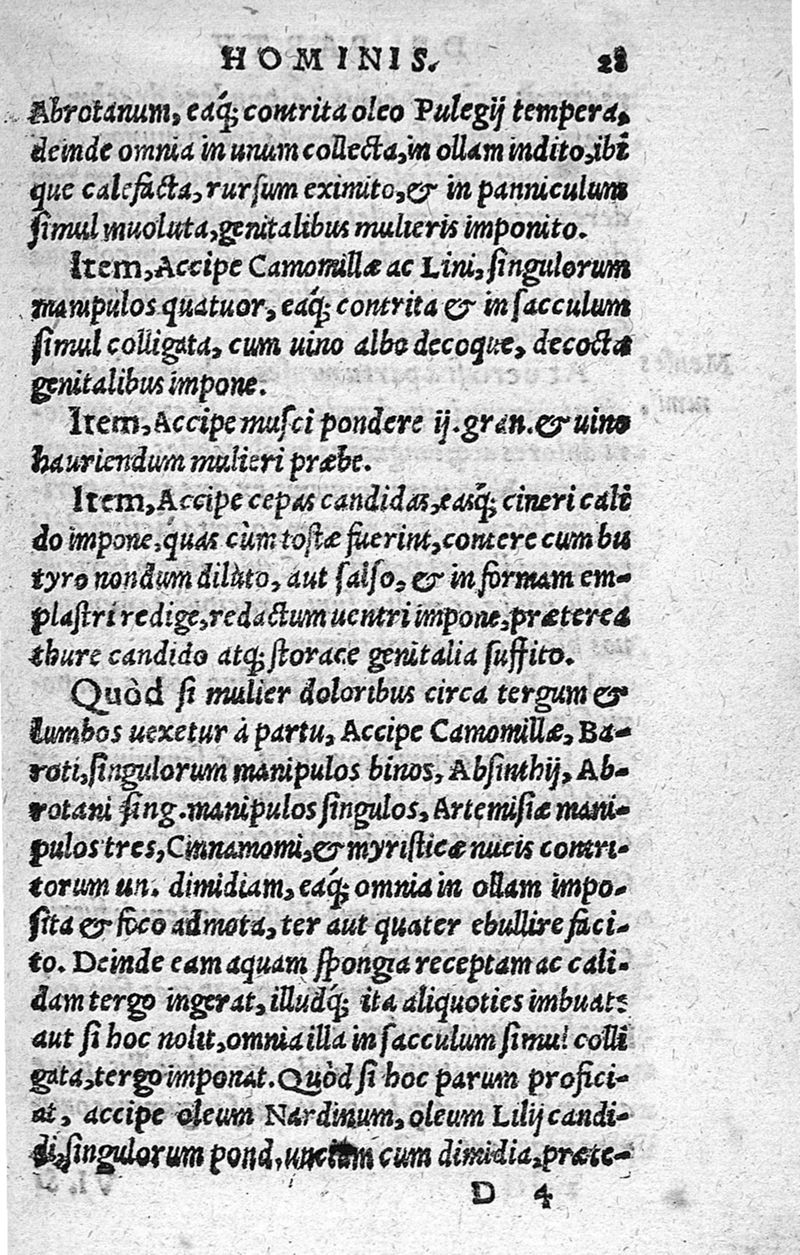 HOMINIS. 28
Abrotanum, eaq́; contrita oleo Pulegij tempera,
deinde omnia in unum collecta, in ollam indito, ibi
que calefacta, rursum eximito, & in panniculum
simul inuoluta, genitalibus mulieris imponito.
Item, Accipe Camomillæ ac Lini, singulorum
manipulos quatuor, eaq́; contrita & in sacculum
simul colligata, cum uino albo decoque, decocta
genitalibus impone.
Item, Accipe musci pondere ij. gran. & uino
hauriendum mulieri præbe.
Item, Accipe cepas candidas, easq́; cineri cali
do impone, quas cùm tostæ fuerint, contere cum bu
tyro nondum diluto, aut salso, & in formam em-
plastri redige, redactum uentri impone, præterea
thure candido atq; storace genitalia suffito.
Quòd si mulier doloribus circa tergum &
lumbos uexetur à partu, Accipe Camomillæ, Ba-
roti, singulorum manipulos binos, Absinthij, Ab-
rotani sing. manipulos singulos, Artemisiæ mani-
pulos tres, Cinnamomi, & myristicæ nucis contri-
torum un. dimidiam, eaq́; omnia in ollam impo-
sita & foco admota, ter aut quater ebullire faci-
to. Deinde eam aquam spongia receptam ac cali-
dam tergo ingerat, illudq́; ita aliquoties imbuat:
aut si hoc nolit, omnia illa in sacculum simul colli
gata, tergo imponat. Quòd si hoc parum profici-
at, accipe oleum Nardinum, oleum Lilij candi-
di, singulorum pond. unciam cum dimidia, præte-
D 4